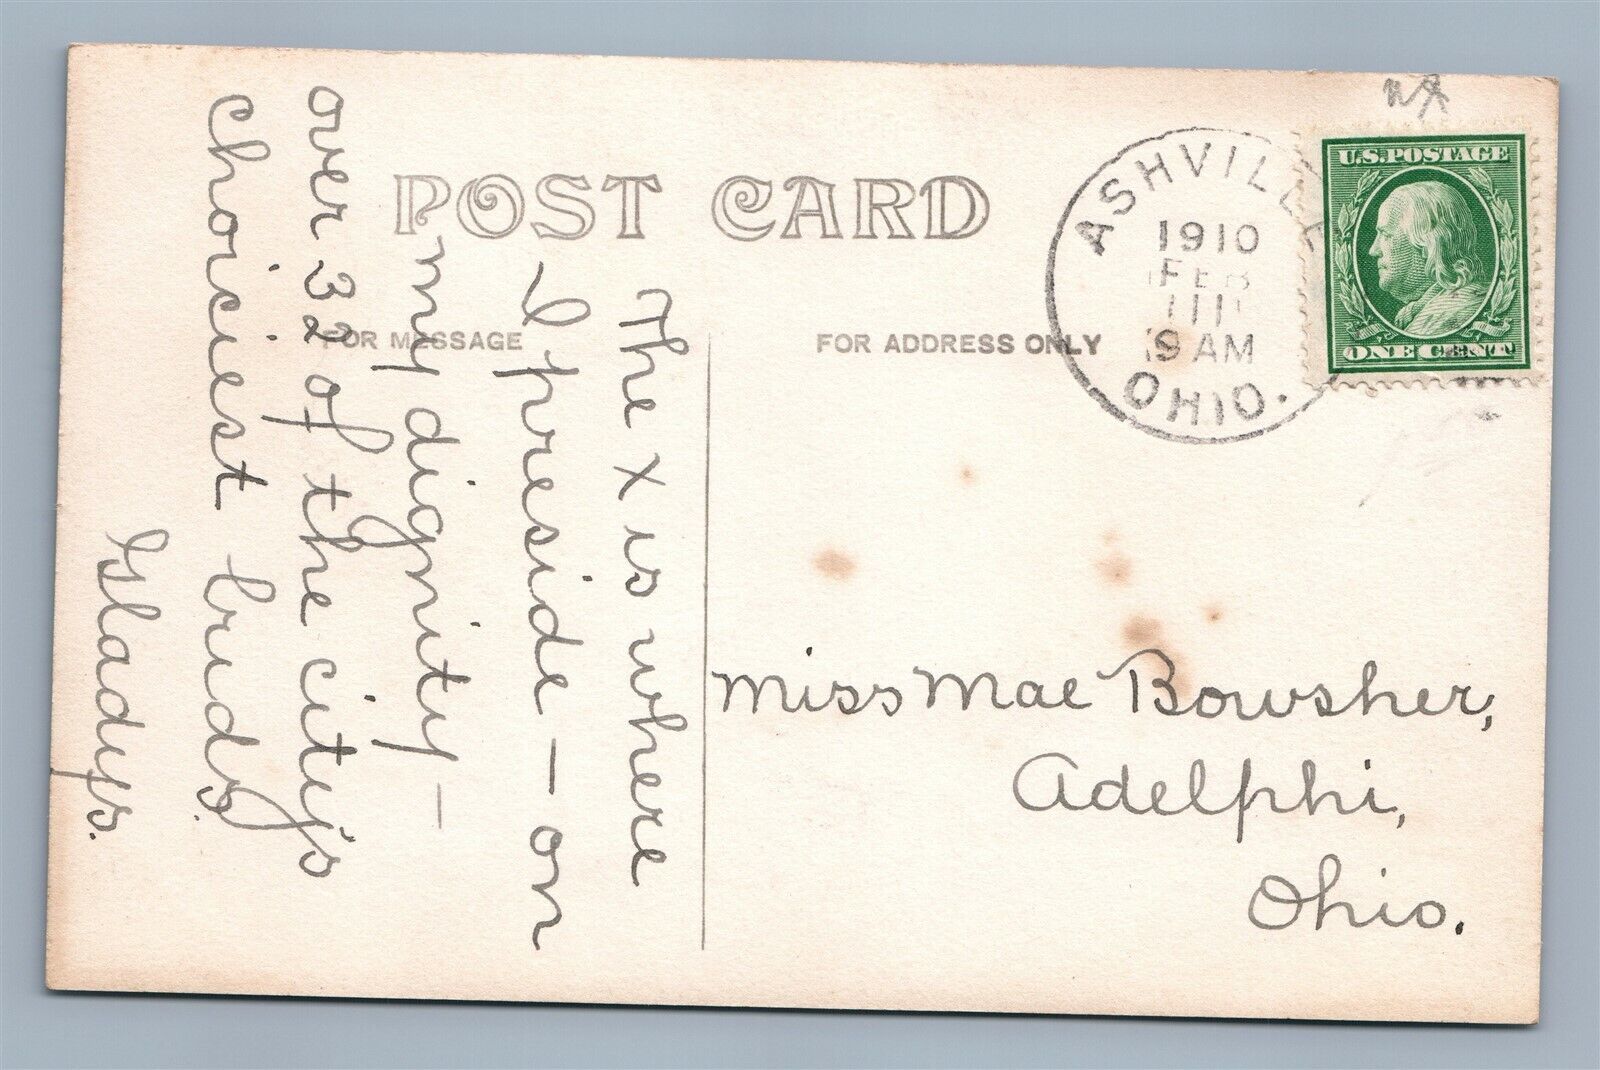 POST CARD
FOR MESSAGE
FOR ADDRESS ONLY
ASHVILLE
1910
FEB
9 AM
OHIO.
U.S. POSTAGE
ONE CENT
The x is where
I preside — on
my dignity —
over 32 of the city's
choiciest buds.
Gladys.
Miss Mae Bowsher,
Adelphi,
Ohio.